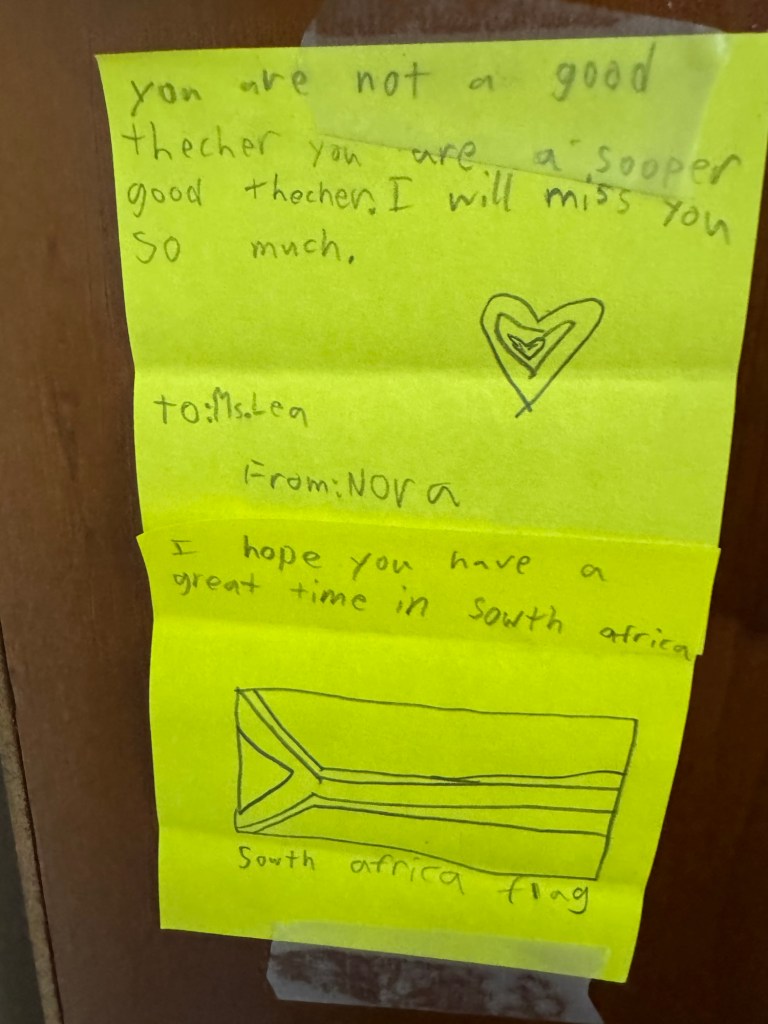 you are not a good
thecher you are a sooper
good thecher. I will miss you
so much.
to: Ms. Lea
From: NOVa
I hope you have a
great time in sowth africa
sowth africa flag